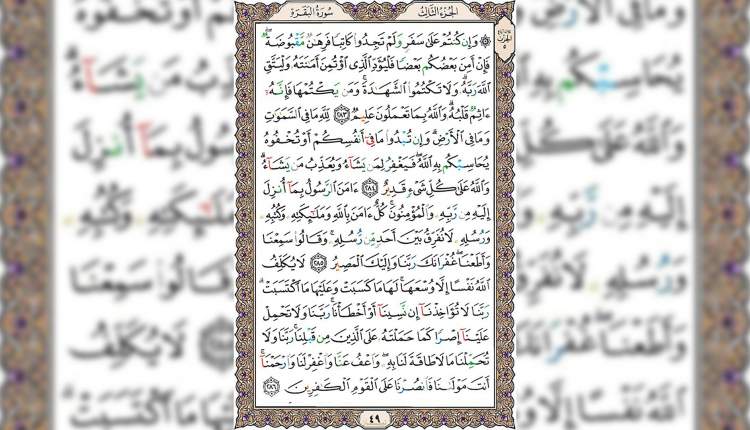 سورة البقرة
الجزء الثالث
۞ وَإِن كُنتُمْ عَلَىٰ سَفَرٍ وَلَمْ تَجِدُوا۟ كَاتِبًا فَرِهَٰنٌ مَّقْبُوضَةٌ ۖ
فَإِنْ أَمِنَ بَعْضُكُم بَعْضًا فَلْيُؤَدِّ ٱلَّذِى ٱؤْتُمِنَ أَمَٰنَتَهُۥ وَلْيَتَّقِ
ٱللَّهَ رَبَّهُۥ ۗ وَلَا تَكْتُمُوا۟ ٱلشَّهَٰدَةَ ۚ وَمَن يَكْتُمْهَا فَإِنَّهُۥٓ
ءَاثِمٌ قَلْبُهُۥ ۗ وَٱللَّهُ بِمَا تَعْمَلُونَ عَلِيمٌ ٢٨٣ لِّلَّهِ مَا فِى ٱلسَّمَٰوَٰتِ
وَمَا فِى ٱلْأَرْضِ ۗ وَإِن تُبْدُوا۟ مَا فِىٓ أَنفُسِكُمْ أَوْ تُخْفُوهُ
يُحَاسِبْكُم بِهِ ٱللَّهُ ۖ فَيَغْفِرُ لِمَن يَشَآءُ وَيُعَذِّبُ مَن يَشَآءُ ۗ
وَٱللَّهُ عَلَىٰ كُلِّ شَىْءٍ قَدِيرٌ ٢٨٤ ءَامَنَ ٱلرَّسُولُ بِمَآ أُنزِلَ
إِلَيْهِ مِن رَّبِّهِۦ وَٱلْمُؤْمِنُونَ ۚ كُلٌّ ءَامَنَ بِٱللَّهِ وَمَلَٰٓئِكَتِهِۦ وَكُتُبِهِۦ
وَرُسُلِهِۦ لَا نُفَرِّقُ بَيْنَ أَحَدٍ مِّن رُّسُلِهِۦ ۚ وَقَالُوا۟ سَمِعْنَا
وَأَطَعْنَا ۖ غُفْرَانَكَ رَبَّنَا وَإِلَيْكَ ٱلْمَصِيرُ ٢٨٥ لَا يُكَلِّفُ
ٱللَّهُ نَفْسًا إِلَّا وُسْعَهَا ۚ لَهَا مَا كَسَبَتْ وَعَلَيْهَا مَا ٱكْتَسَبَتْ ۗ
رَبَّنَا لَا تُؤَاخِذْنَآ إِن نَّسِينَآ أَوْ أَخْطَأْنَا ۚ رَبَّنَا وَلَا تَحْمِلْ
عَلَيْنَآ إِصْرًا كَمَا حَمَلْتَهُۥ عَلَى ٱلَّذِينَ مِن قَبْلِنَا ۚ رَبَّنَا وَلَا
تُحَمِّلْنَا مَا لَا طَاقَةَ لَنَا بِهِۦ ۖ وَٱعْفُ عَنَّا وَٱغْفِرْ لَنَا وَٱرْحَمْنَآ ۚ
أَنتَ مَوْلَىٰنَا فَٱنصُرْنَا عَلَى ٱلْقَوْمِ ٱلْكَٰفِرِينَ ٢٨٦
٤٩